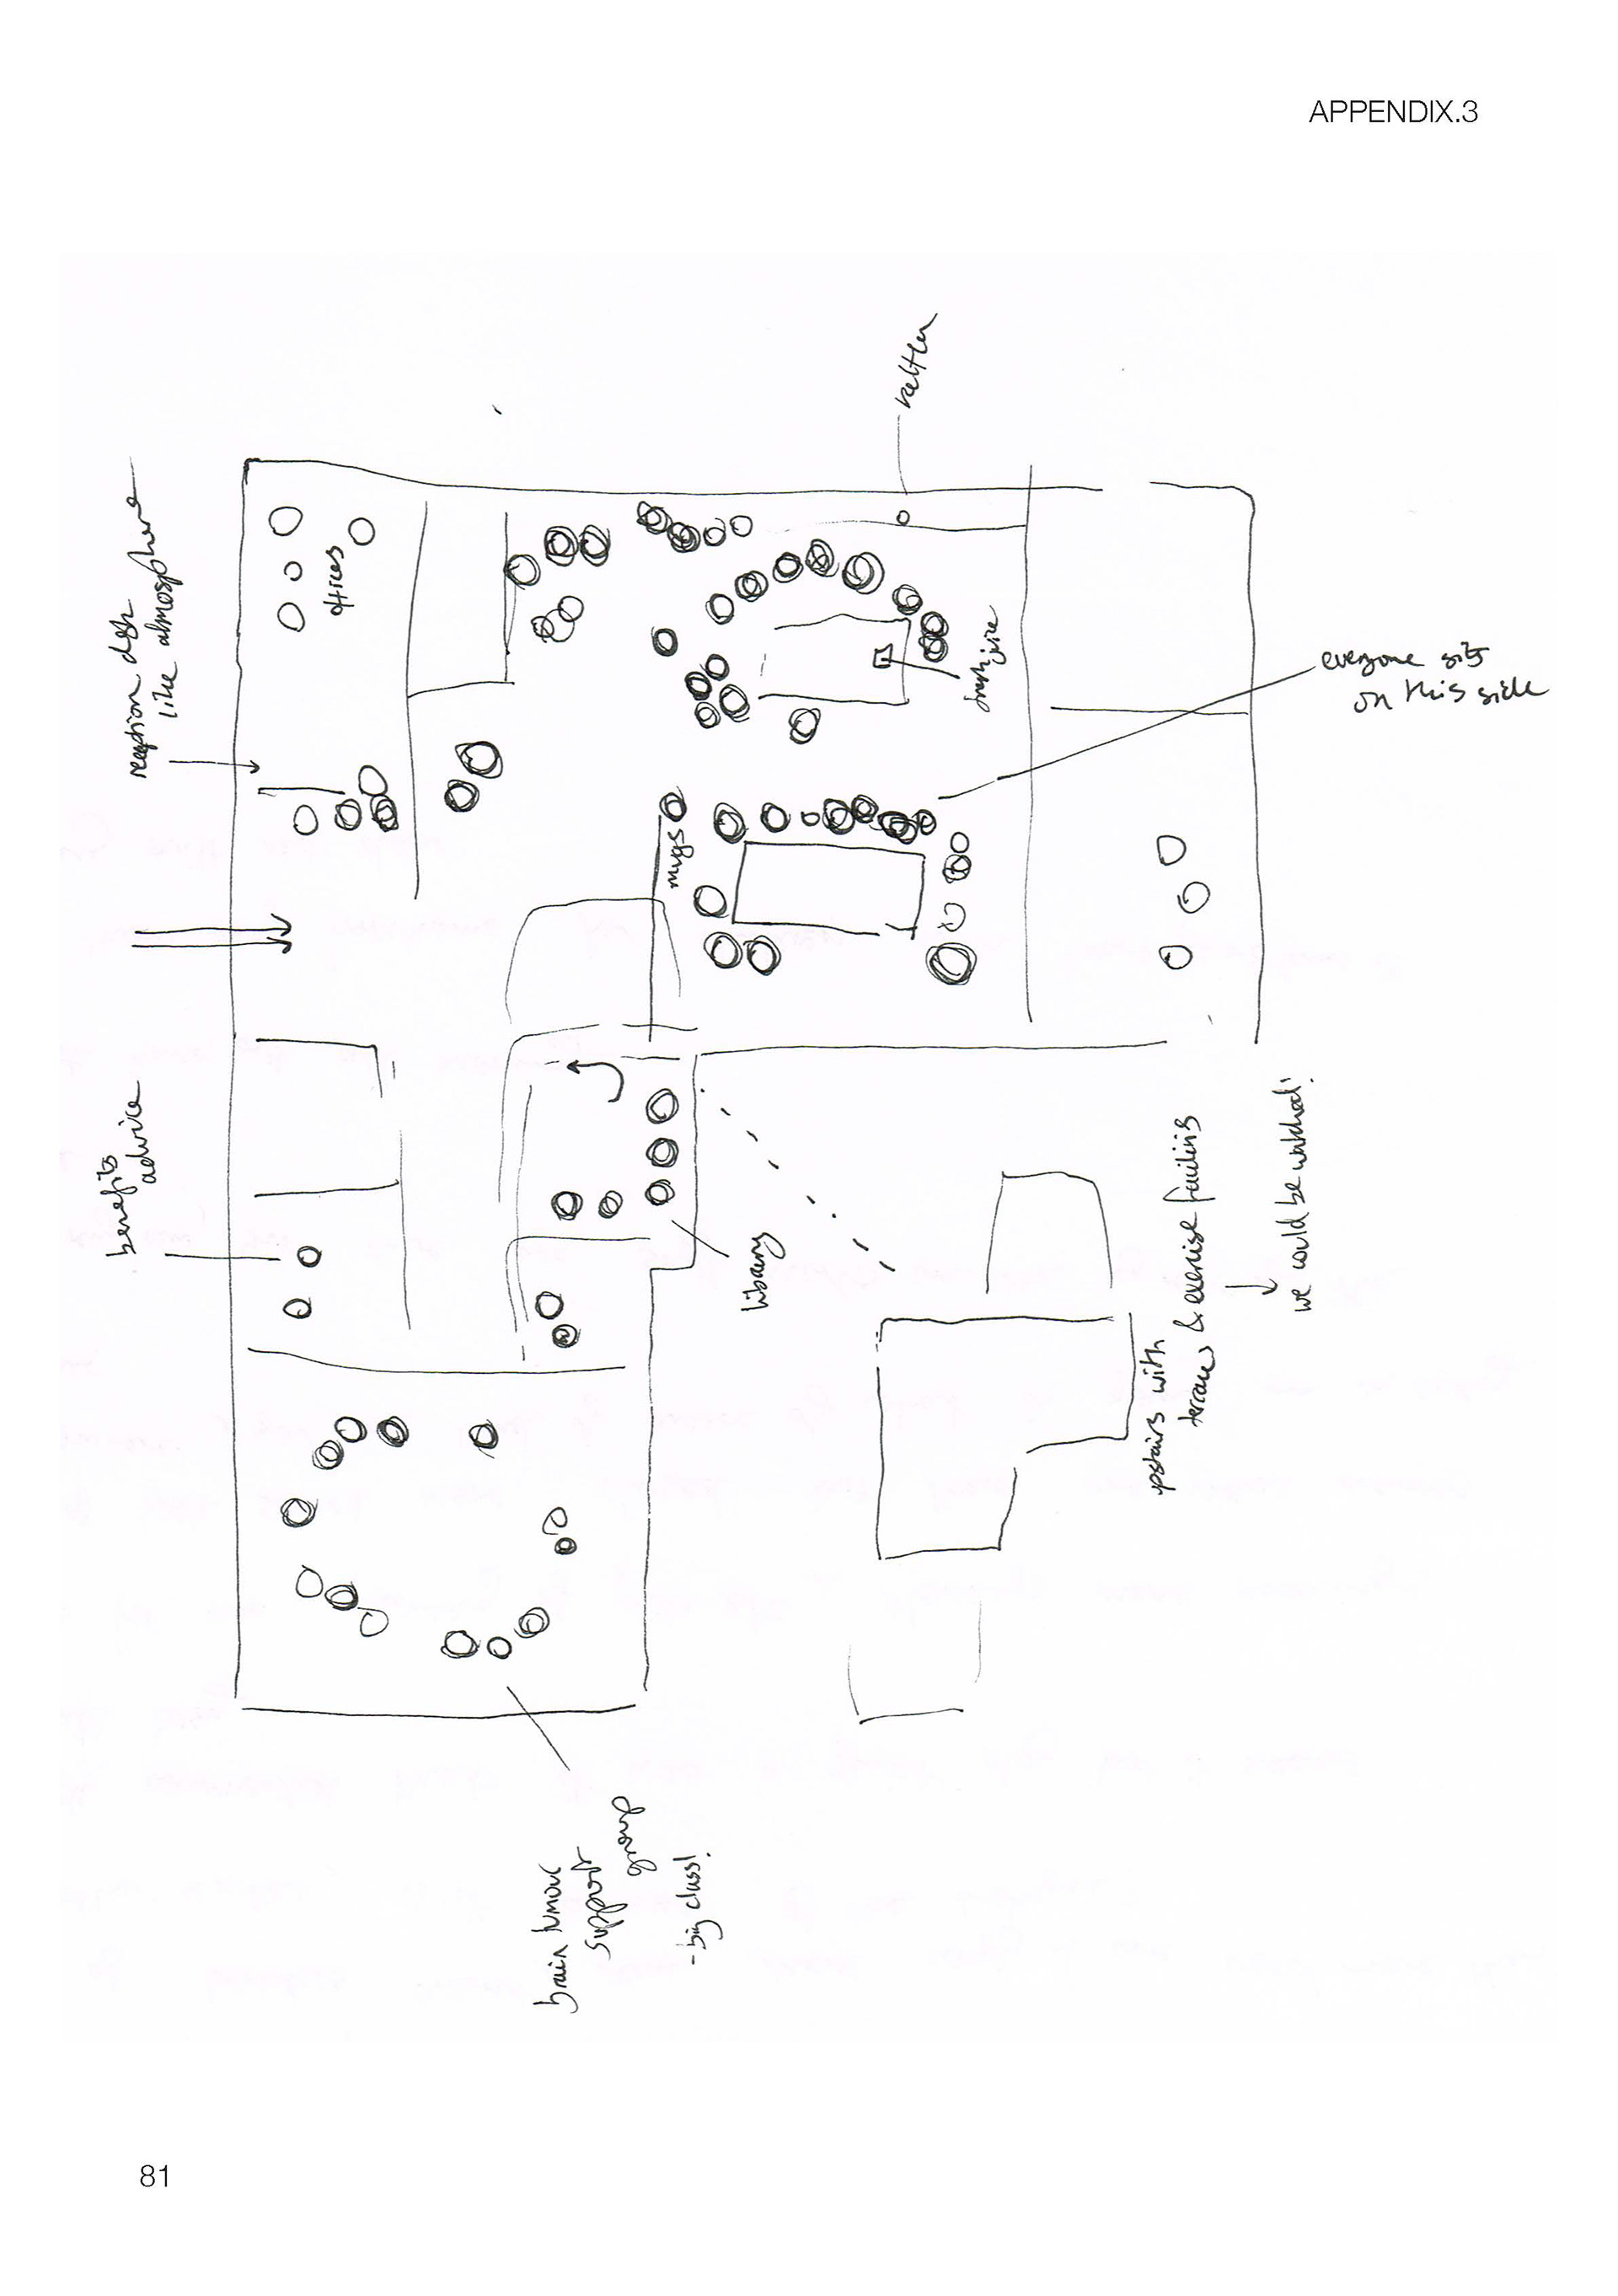 APPENDIX.3
kettle
reception desk
like atmosphere
offices
fruit juice
everyone sits
on this side
mugs
benefits
advice
library
upstairs with
terraces & exercise facilities
we would be watched!
brain tumour
support
group
- big class!
81